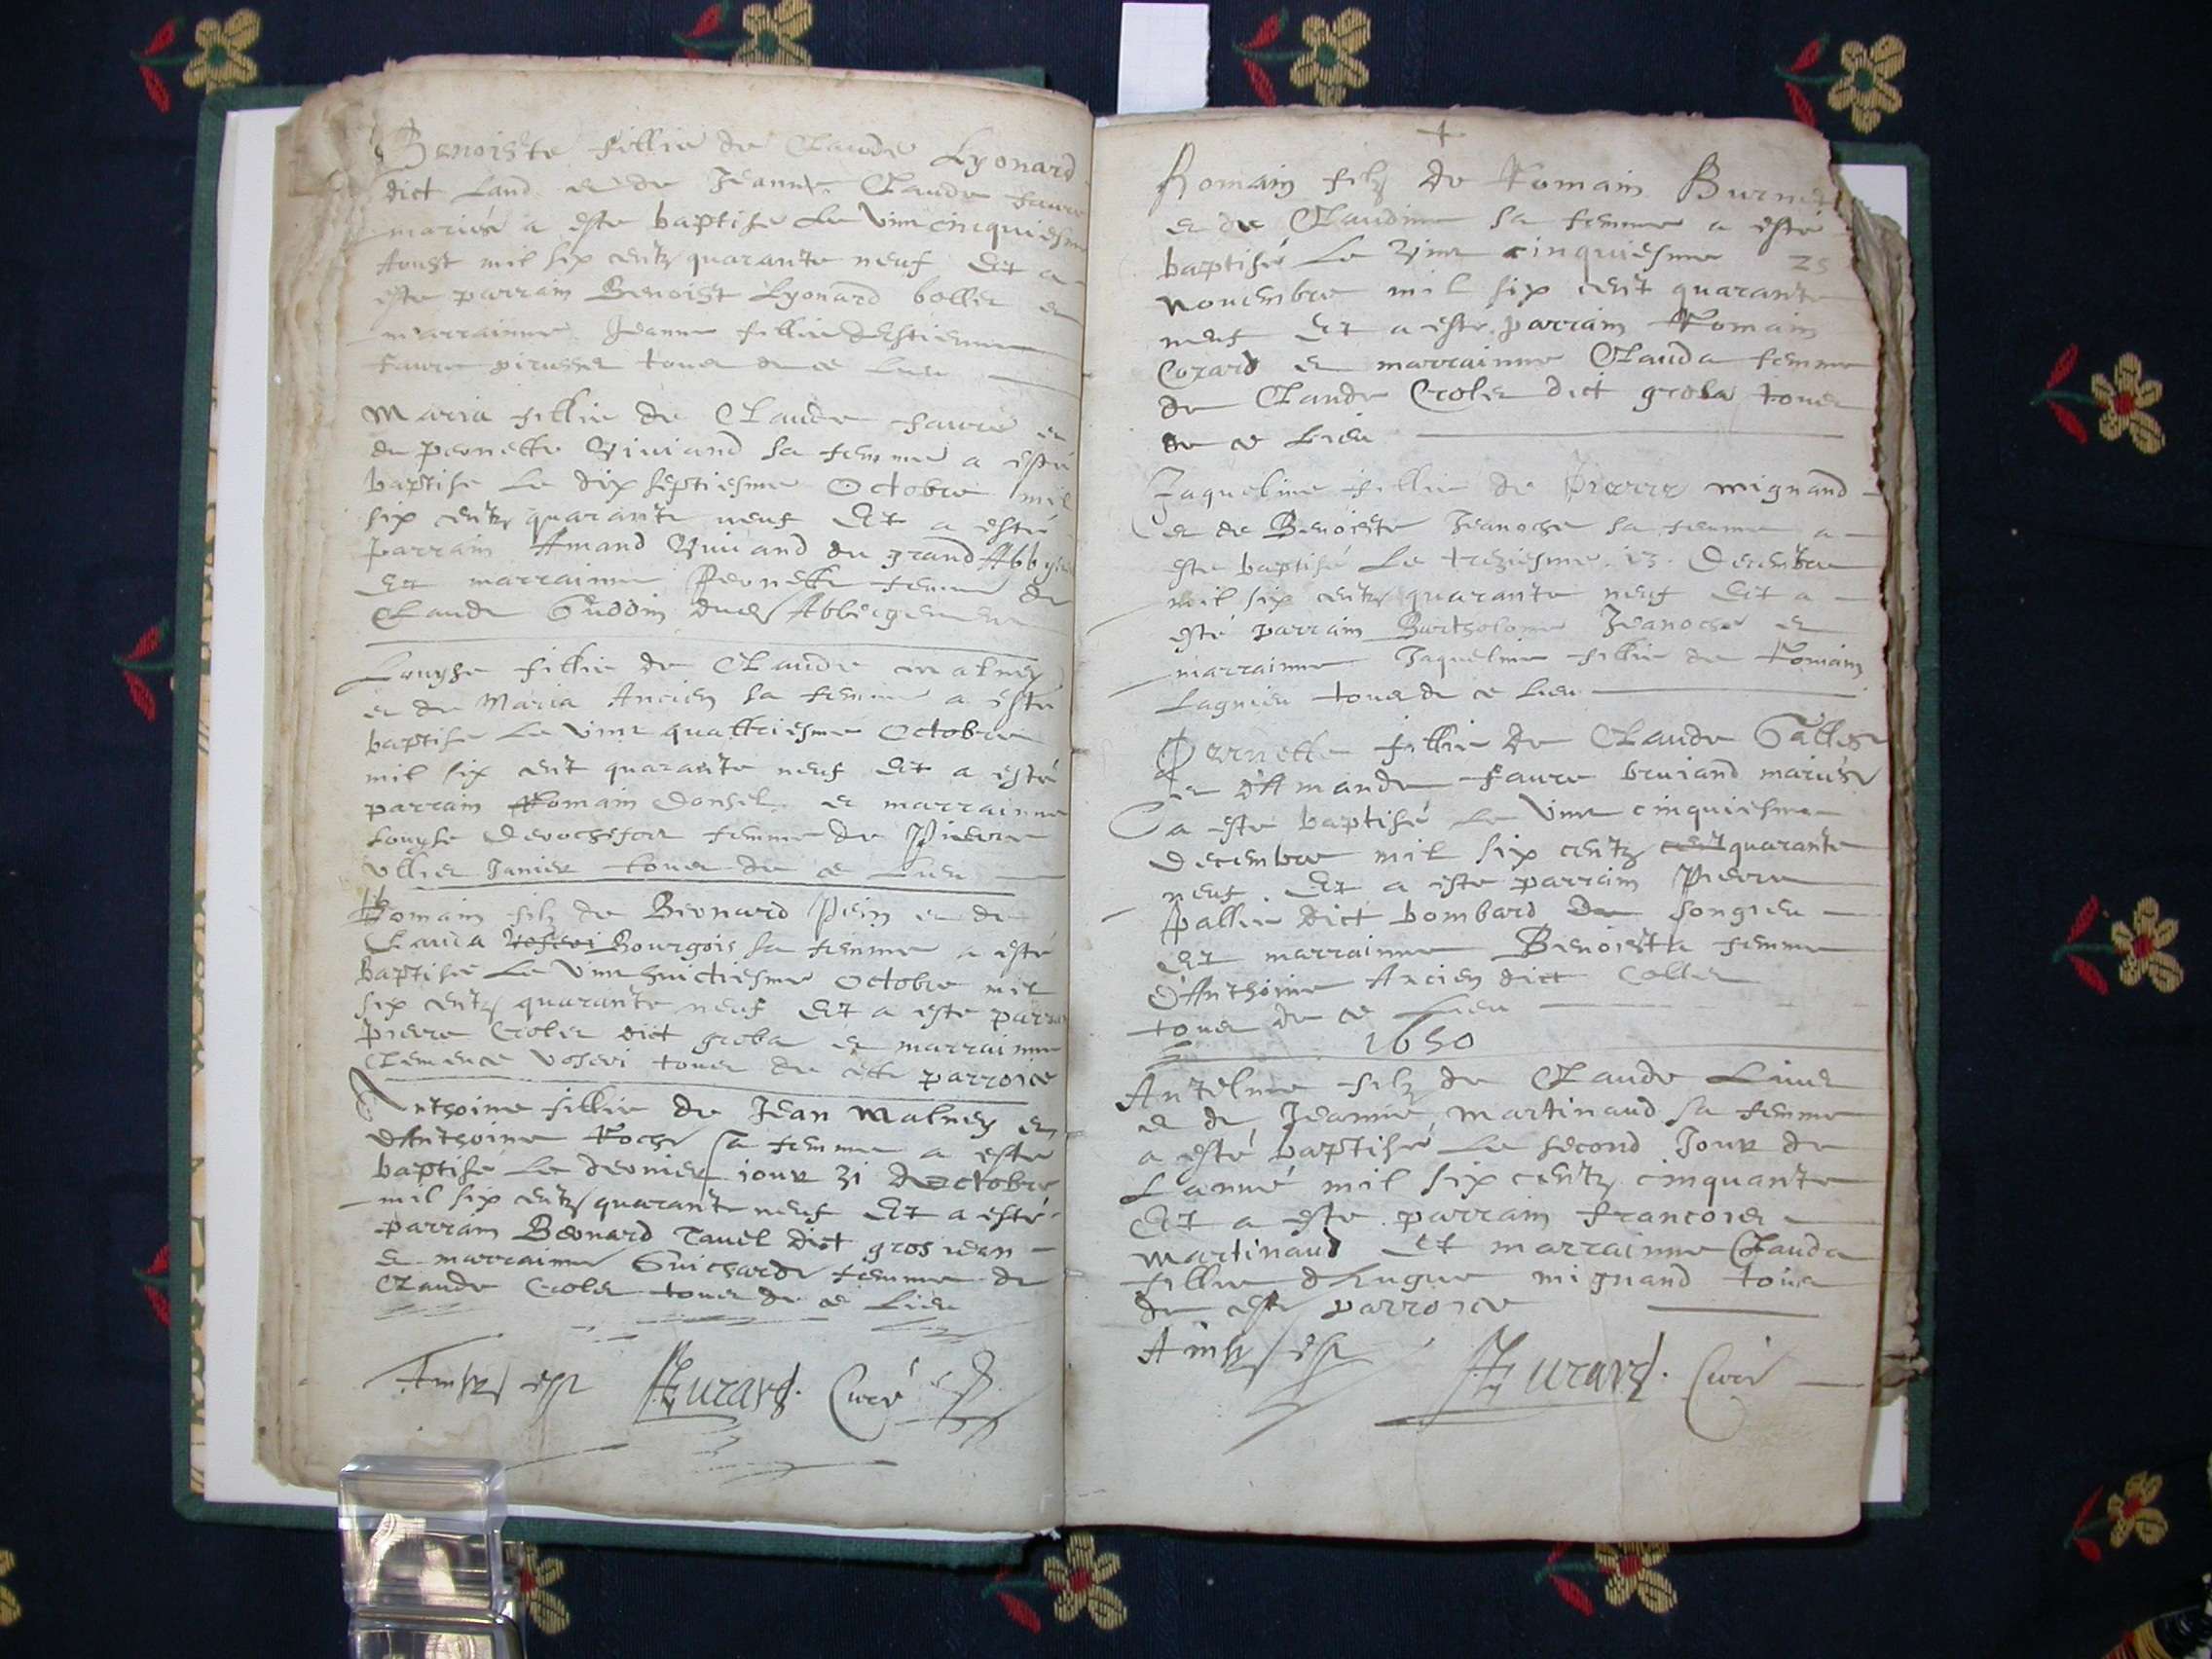 Benoiste fillie de Claude Lyonard
dict Land et de Jeanne Claude faure
mariés a este baptise le vint cinquiesme
Aoust mil six centz quarante neuf Et a
este parrain Benoist Lyonard boller et
marrainne Jeanne fillie d'Estienne
faure tous de ce lieu
Maria fillie de Claude faure et
de pernette Viuiand sa femme a esté
baptise le dix septiesme Octobre mil
six centz quarante neuf Et a esté
parrain Amand Viuiand du grand Abb
Et marrainne Pernette femme de
Claude Guddin dud Abbergement
Louyse fillie de Claude malney
et de Maria Ancien sa femme a este
baptise le vint quattriesme Octobre
mil six cent quarante neuf Et a esté
parrain Romain Donsel et marrainne
Louyse Derochefort femme de Pierre
vllier Janier tous de ce lieu
Romain filz de Bernard Pein et de
Clauda Bourgois sa femme a esté
Baptisé le vint huictiesme Octobre mil
six centz quarante neuf Et a este parrain
pierre Croler dict groba et marrainne
Clemence voseri tous de cette parroice
Anthoine fillie de Jean Malney et
d'Anthoine Roche sa femme a este
baptisé le dernier iour 31 Doctobre
mil six centz quarante neuf Et a esté
parrain Bernard Tauel dict gros iean
et marrainne Guicharde femme de
Claude Croler tous de ce lieu
Ainsy est Hurard. Curé
Romain filz de Romain Burnet
et de Claudine sa femme a esté
baptisé le vint cinquiesme 25
Nouembre mil six cent quarante
neuf Et a esté parrain Romain
Corard et marrainne Clauda femme
de Claude Croler dict groba tous
de ce lieu
Jaqueline fillie de Pierre mignand
et de Benoiste Jeanoche sa femme a
este baptisé le treziesme 13. Decembre
mil six centz quarante neuf Et a
esté parrain Bartholome Jeanoche et
marrainne Jaqueline fillie de Romain
Lagnieu tous de ce lieu
Pernette fillie de Claude Galley
et d'Amande faure bruiand mariés
a este baptisé le vint cinquiesme
Decembre mil six centz cent quarante
neuf Et a este parrain Pierre
pallie dict bombard de songieu
Et marrainne Benoista femme
d'Anthoine Ancien dict Coller
tous de ce lieu
1650
Antelme filz de Claude Liuet
et de Jeanne Martinaud sa femme
a esté baptisé le second Jour de
L'anné mil six centz cinquante
Et a este parrain francois
Martinaud et marrainne Clauda
fillie d'hugue mignand tous
de ceste parroice
Ainsy est Hurard. Curé